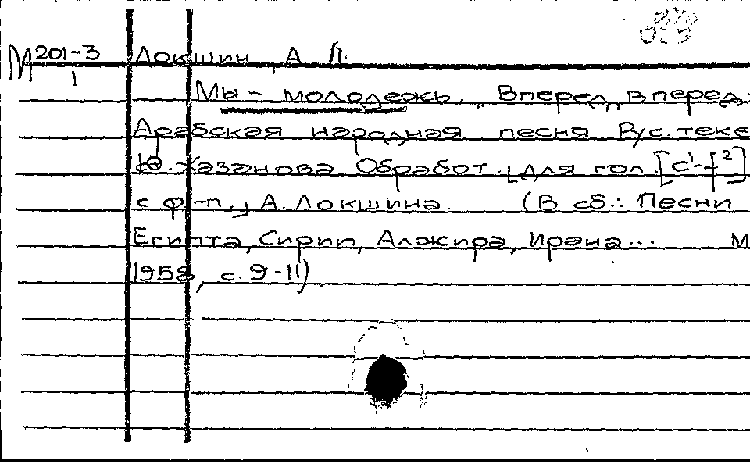 М 201-3/1 Локшин, А. Л.
Мы - молодежь. "Вперед, вперед
Арабская народная песня Рус. текс
Ю. Хазанова Обработ. [для гол. [с¹-f²]
с ф-п., А. Локшина. (В сб.: Песни
Египта, Сирии, Алжира, Ирана... М
1958, с. 9-11)